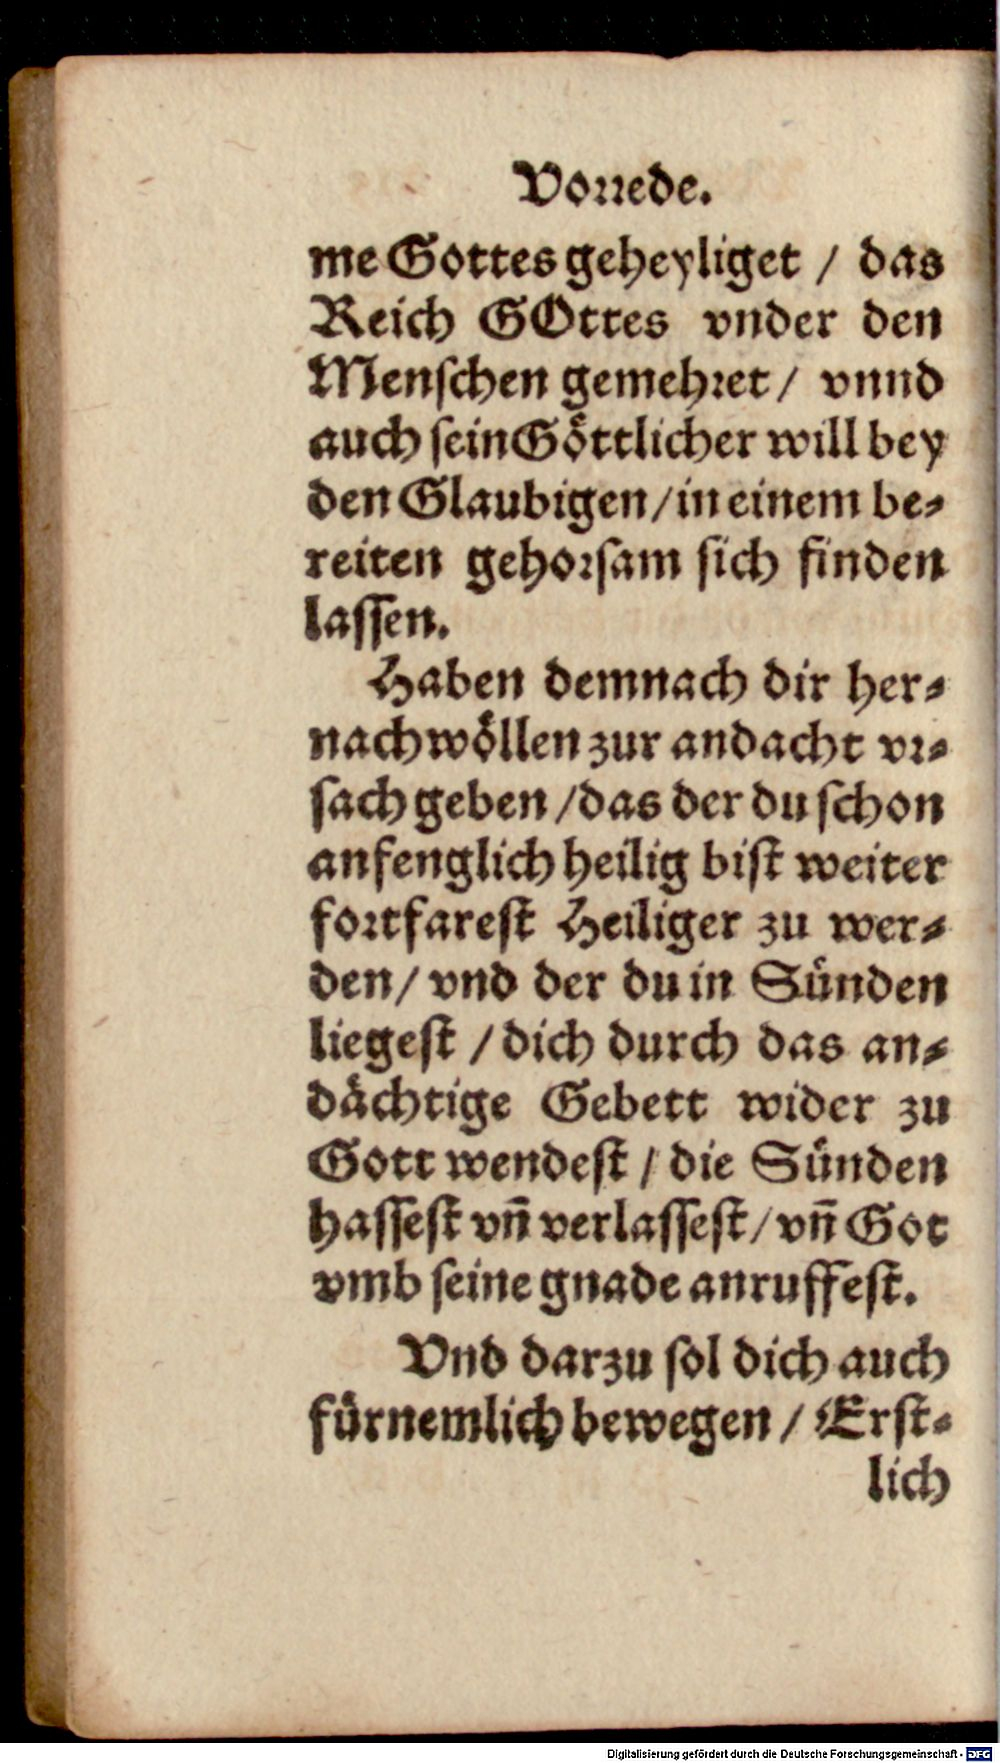 Vorrede.
me Gottes geheyliget / das
Reich GOttes vnder den
Menschen gemehret / vnnd
auch sein Göttlicher will bey
den Glaubigen / in einem be-
reiten gehorsam sich finden
lassen.
Haben demnach dir her-
nach wöllen zur andacht vr-
sach geben / das der du schon
anfenglich heilig bist weiter
fortfarest Heiliger zu wer-
den / vnd der du in Sünden
liegest / dich durch das an-
dächtige Gebett wider zu
Gott wendest / die Sünden
hassest vñ verlassest / vñ Got
vmb seine gnade anruffest.
Vnd darzu sol dich auch
fürnemlich bewegen / Erst-
lich
Digitalisierung gefördert durch die Deutsche Forschungsgemeinschaft - DFG